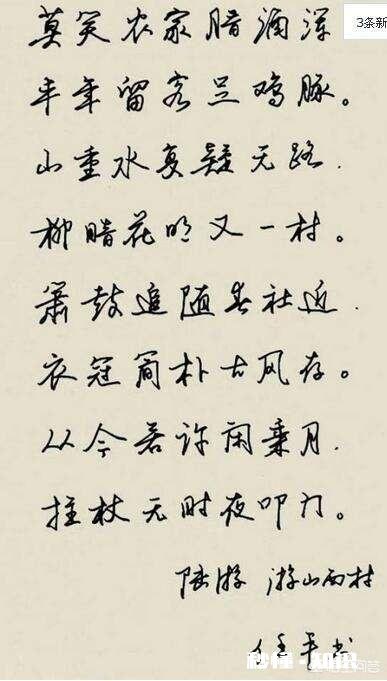 3条新
莫笑农家腊酒浑
丰年留客足鸡豚。
山重水复疑无路.
柳暗花明又一村。
箫鼓追随春社近.
衣冠简朴古风存。
从今若许闲乘月.
拄杖无时夜叩门。
陆游 游山西村
任平书